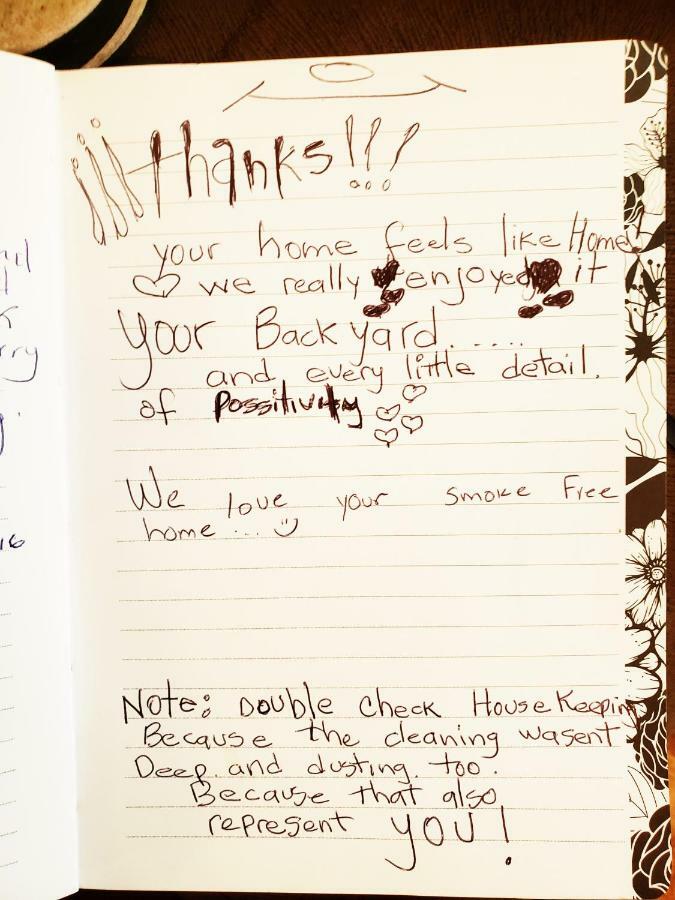 ¡¡¡thanks!!!
your home feels like Home
we really enjoyed it
your Backyard.....
and every little detail.
of Possitivity
We love your smoke Free
home ...
Note: Double check HouseKeeping
Because the cleaning wasent
Deep. and dusting. too.
Because that also
represent you!
16